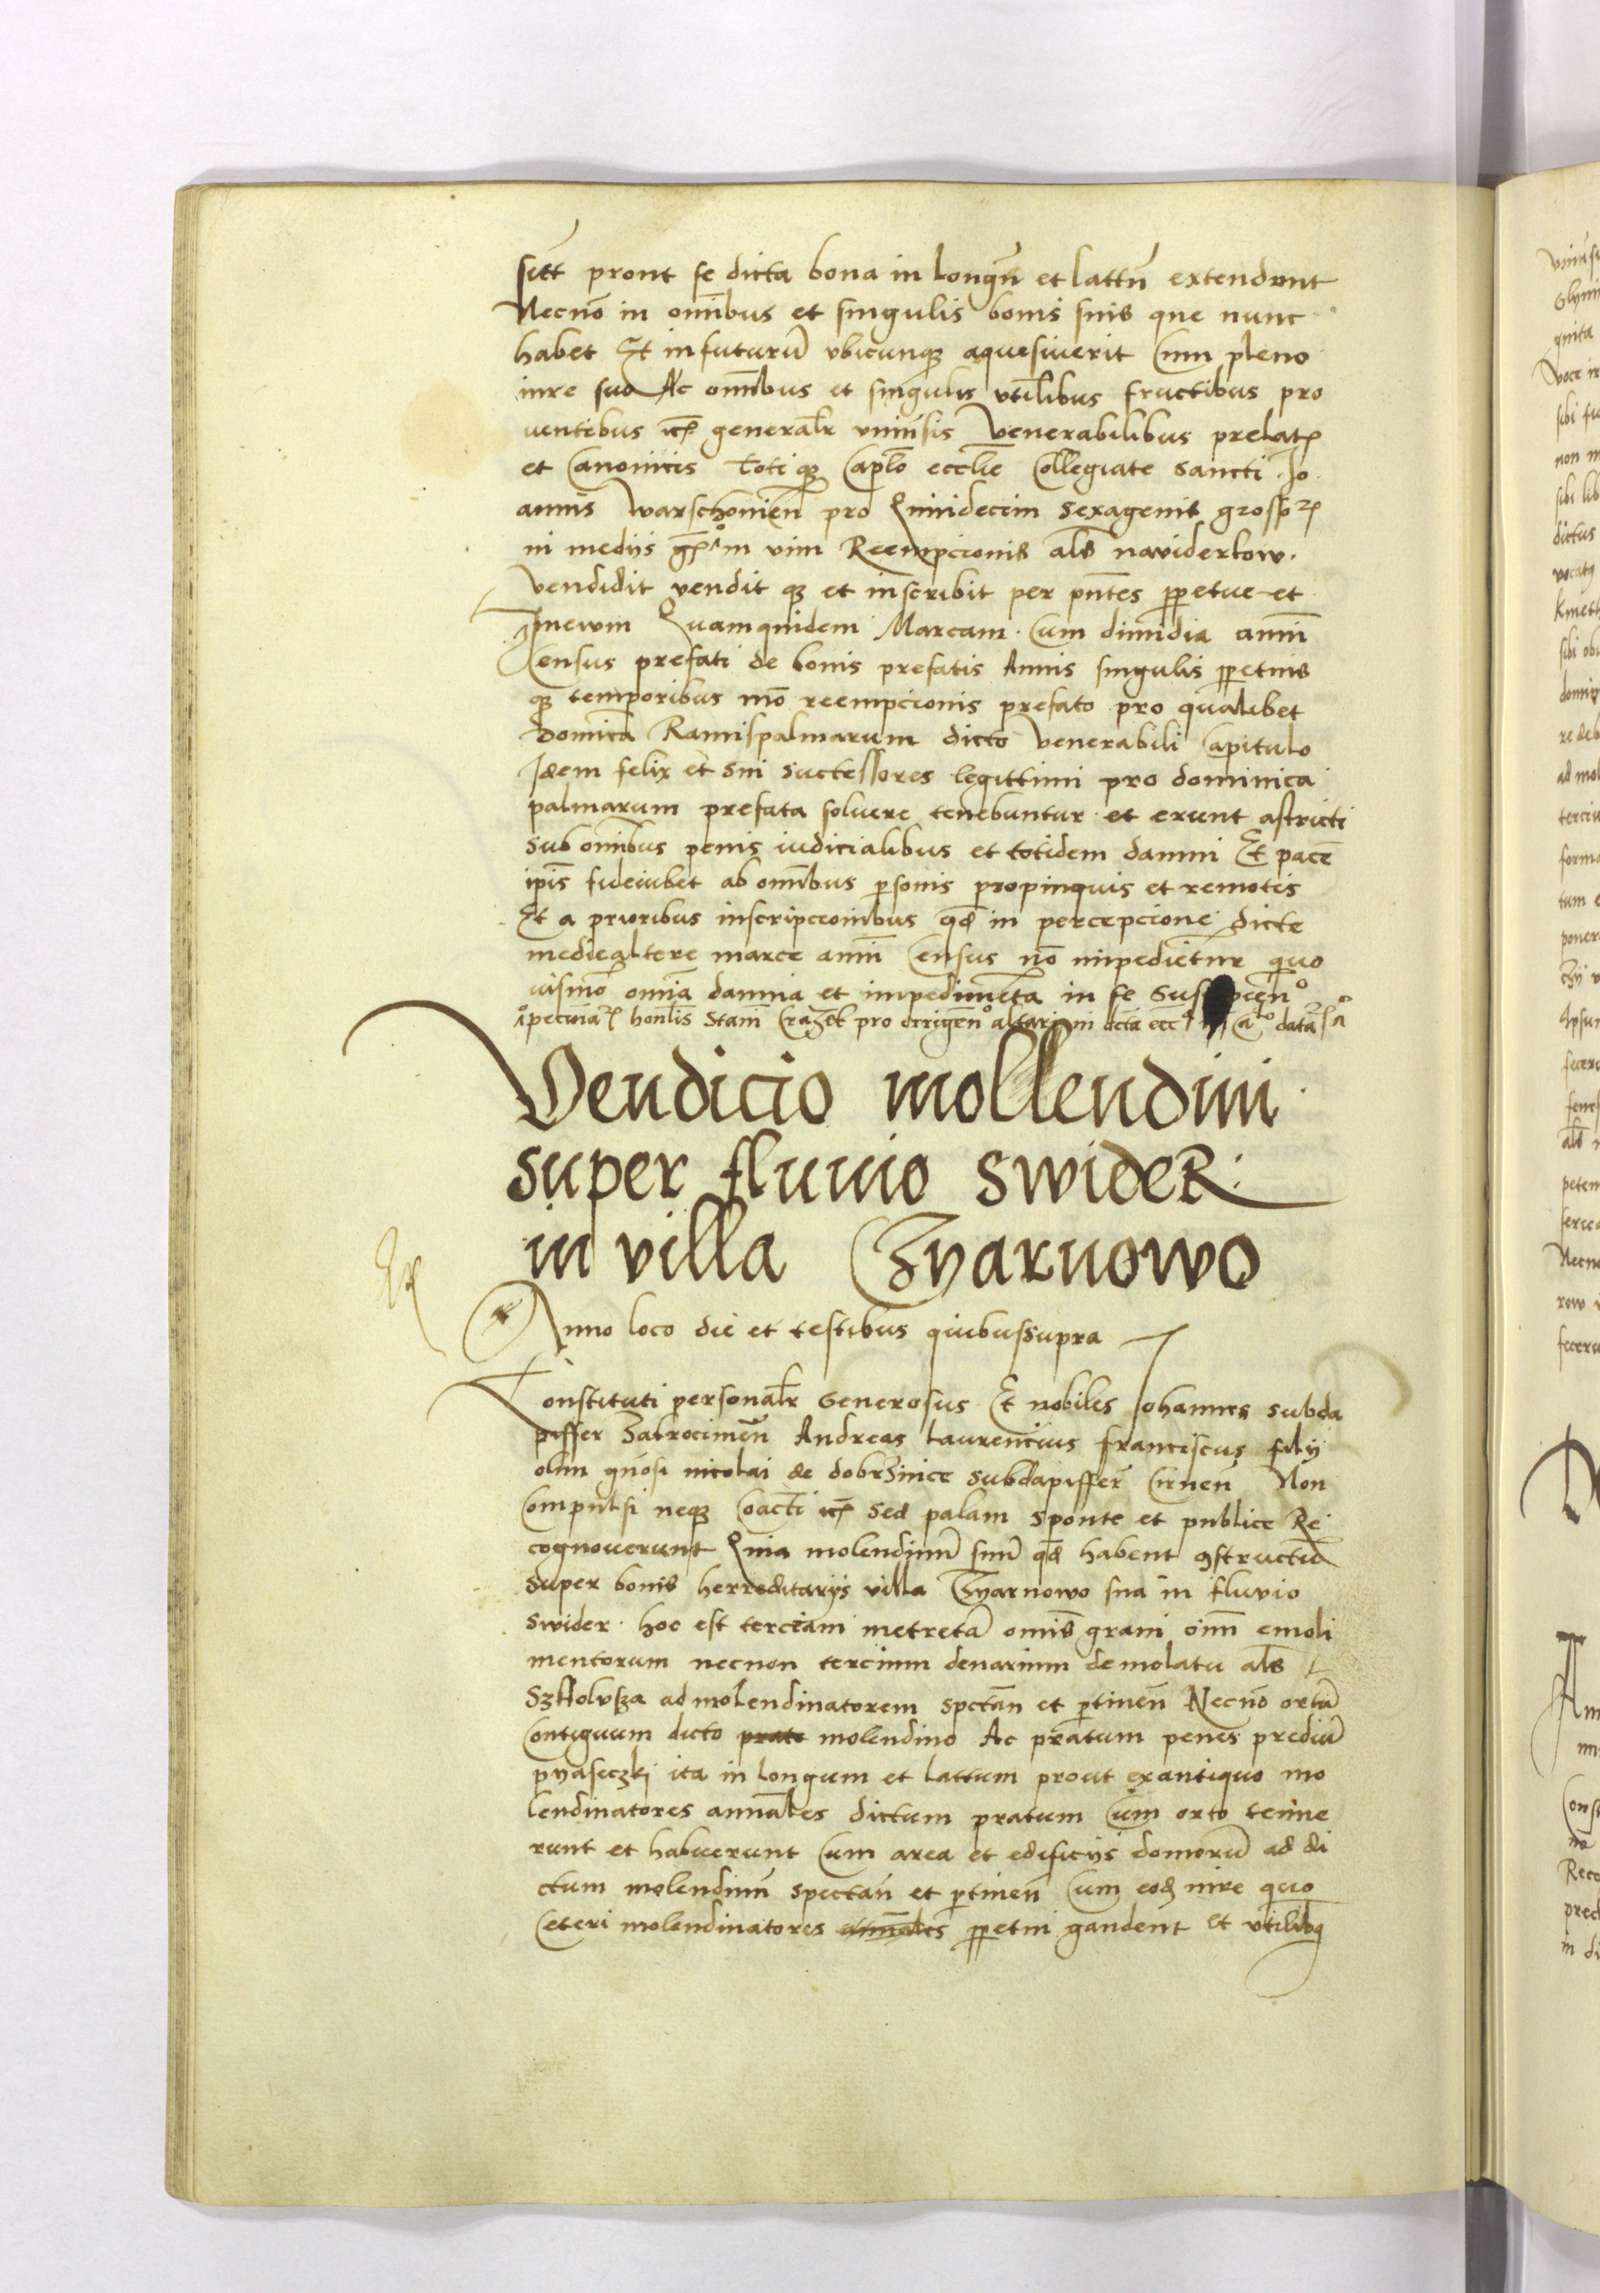 sitt prout se dicta bona in longū et lattū extendunt
Necnō in om̄ibus et singulis bonis suis que nunc
habet Et in futurū vbicunqz aquesiuerit Cum pleno
iure suo Ac om̄ibus et singulis vtilibus fructibus pro
uentibus generalr vniūsis Venerabilibus prelat
et Canonicis Totiqz Caplō ecclīe Collegiate Sancti Jo
annis Warschouien̄ pro Quindecim Sexagenis grossor
in mediis in vim Reempcionis als naviderkow.
Vendidit vendit qz et inscribit per pn̄tes ppetue et
Inewm Quamquidem Marcam Cum dimidia annui
Census prefati de bonis prefatis Annis singulis ppetuis
qz temporibus mō reempcionis prefato pro qualibet
domīca Ramispalmarum dicto Venerabili Capitulo
Idem felix et Sui Successores legittimi pro dominica
palmarum prefata soluere tenebuntur et erunt astricti
Sub om̄ibus penis iudicialibus et totidem damni Et pacē
ip̄is fideiubet ab om̄ibus psonis propinquis et remotis
Et a prioribus inscripcionibus qd in percepcione dicte
mediealtere marce annui Census nō impedietur quo
uismō omīa damna et impedimēta in se
pecuniar Stani pro errigen̄ data
Vendicio mollendini
super fluuio swider
in villa Czyarnowo
Anno loco die et testibus quibussupra
Constituti personalr Generosus Et nobiles Johannes subda
piffer Zakrocimen̄ Andreas laurencius franciscus filij
olim gn̄osi nicolai de dobrzinice subdapifferi Cirnen̄ Non
Compulsi neqz Coacti Sed palam sponte et publice Re
cognouerunt Quia molendinū suū qd habent 9structū
super bonis herreditarijs villa Czyarnowo sua in fluvio
swider hoc est terciam metretā omīs grani oīm emoli
mentorum necnon tercium denarium demolatu als
ad molendinatorem spctan̄ et ptinen̄ Necnō ortū
Contiguum dicto prato molendino Ac pratum penes prediū
pyaseczkj ita in longum et lattum prout exantiquo mo
lendinatores annales dictum pratum Cum orto tenue
runt et habuerunt Cum area et edificijs domorū ad di
ctum molendinū spectan̄ et ptinen̄ Cum eodz iure quo
Ceteri molendinatores annales ppetui gaudent Et vtilibq